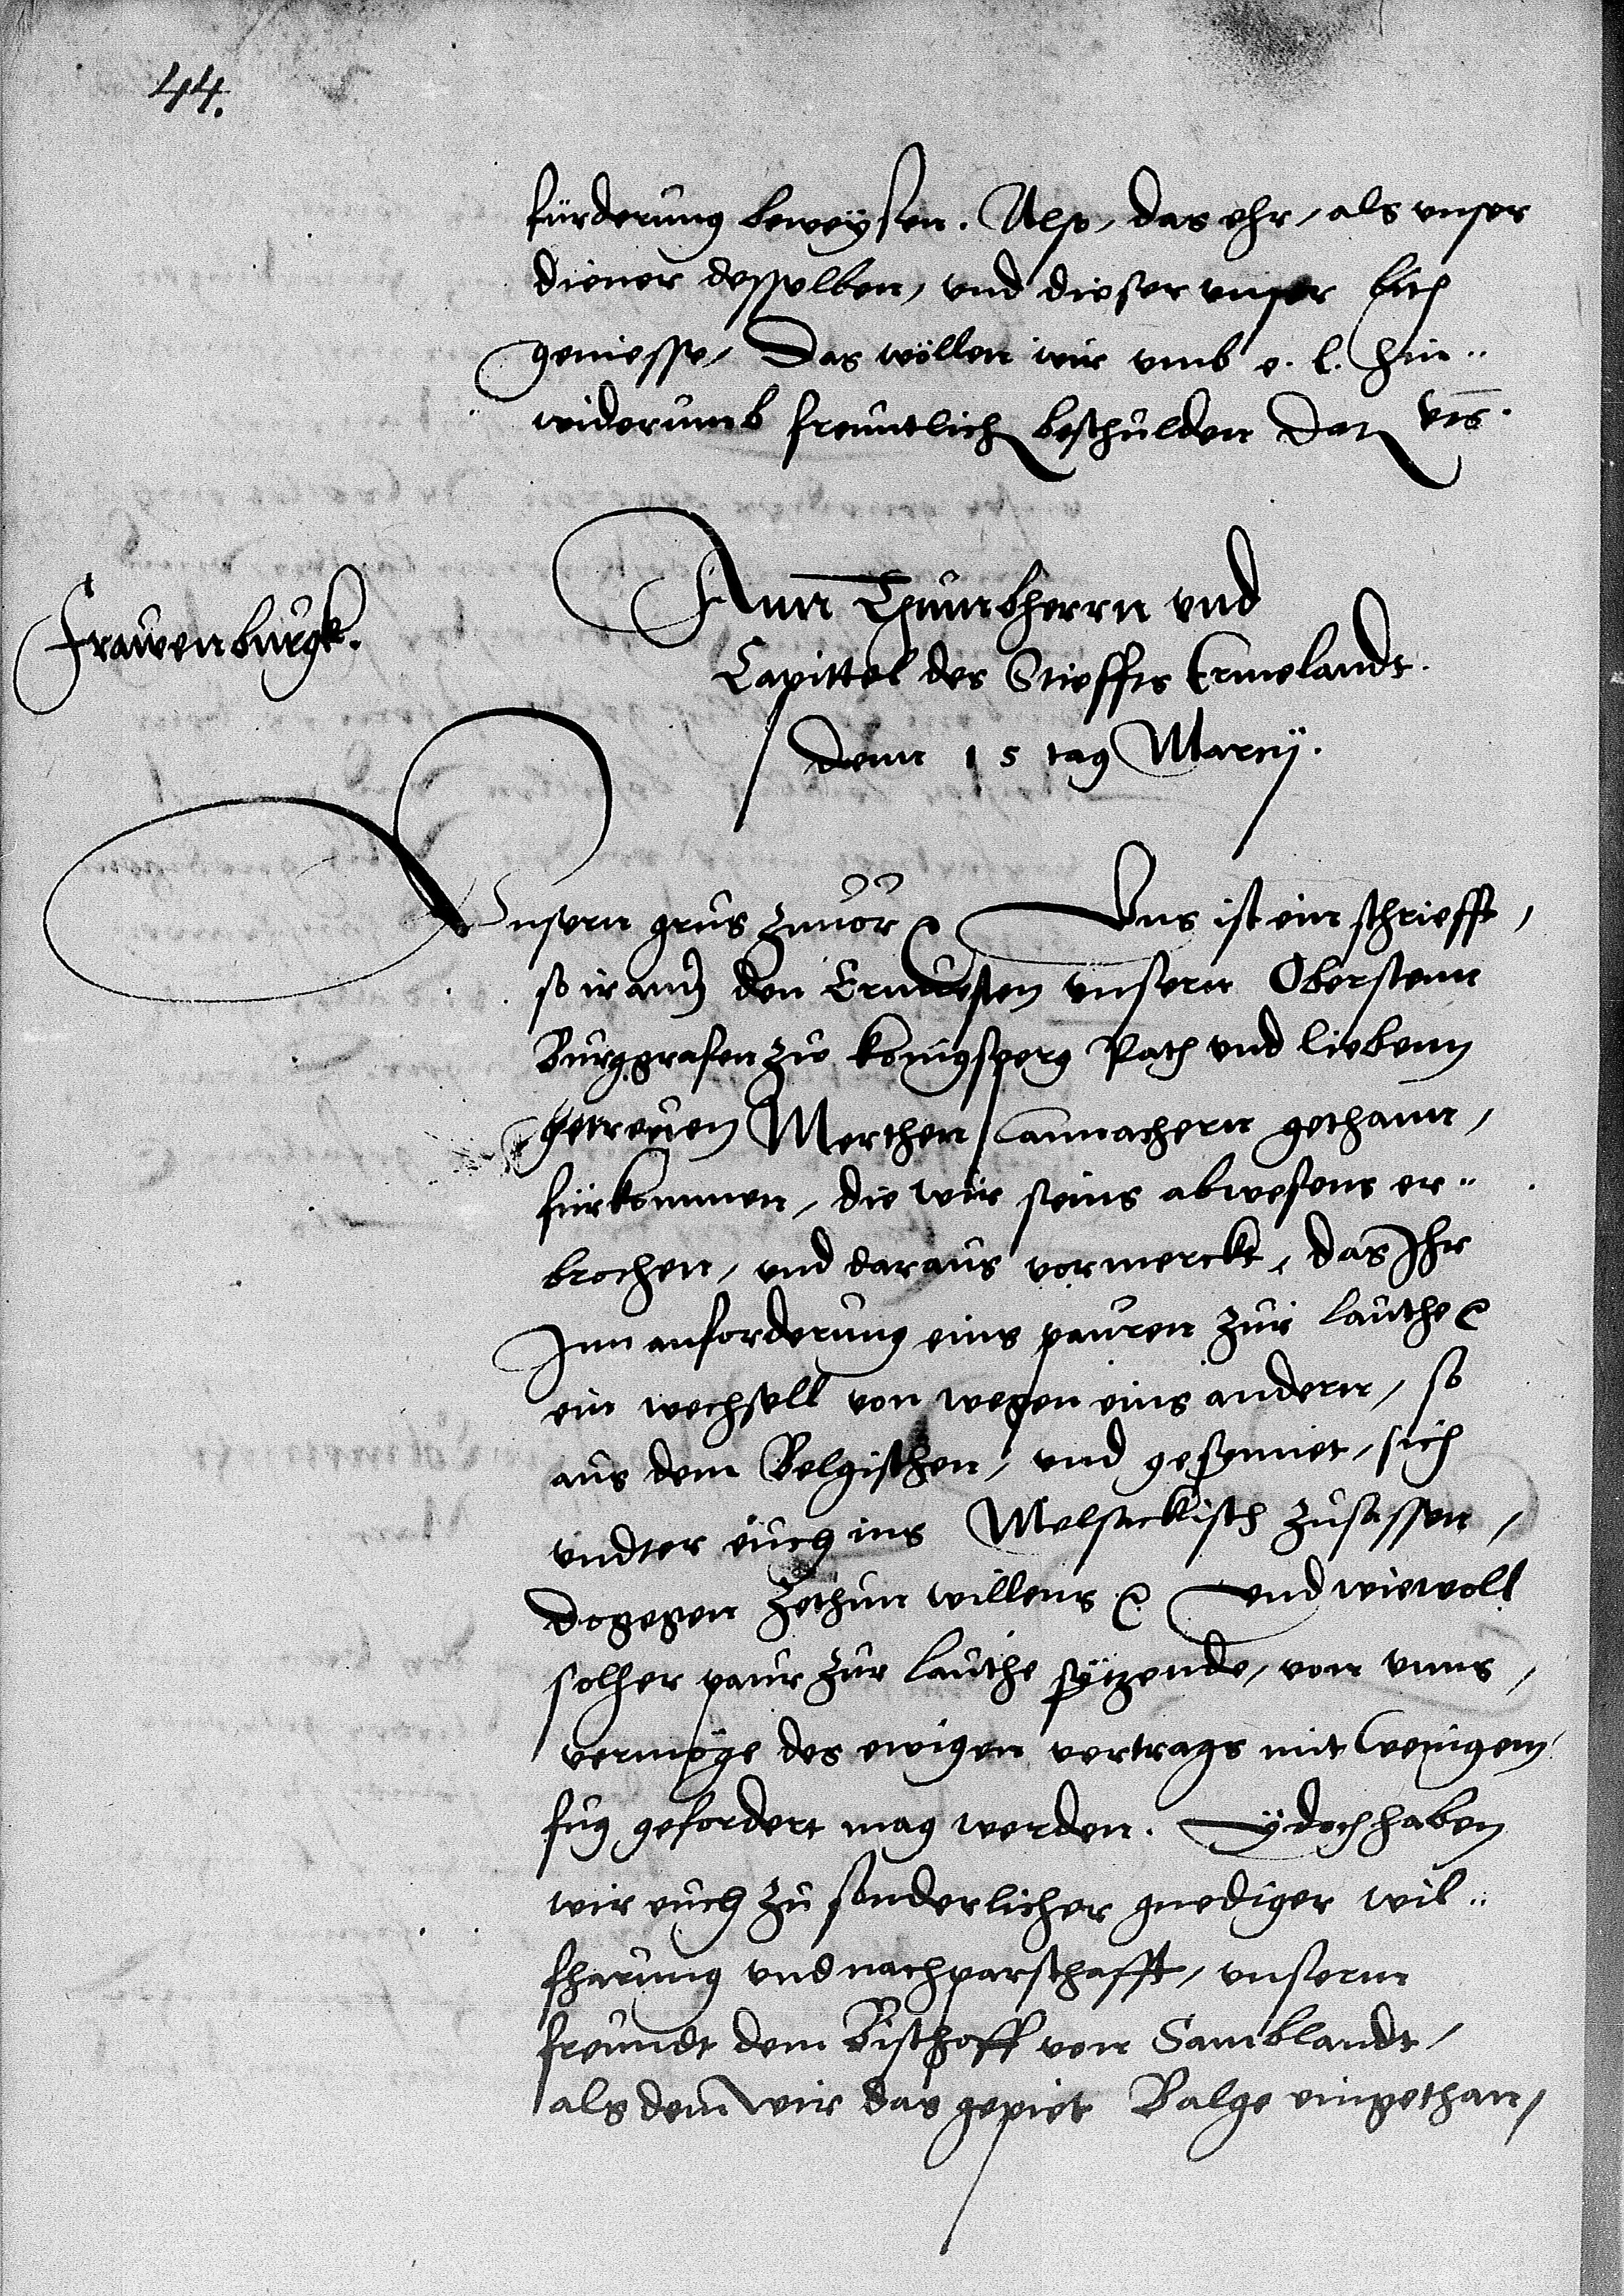 44.
fürderung beweysen. Also, das ehr, als unser
diener desselben, und dieser unser bith
geniesse, Das wöllen wir umb e. l. hin„
widerumb freuntlich beschulden Dat ut s.
Frawenburgk.
Ann Thumbherrn und
Capittel des Stieffts Ermelandt.
Denn 15 tag Marcij.
Unsern grus zuvor Uns ist ein schriefft,
so ir ann den Ernuesten unsern Obersten
Burggrafen zw konigsperg Rath und liebenn
getreuen Merthen Cannachern gethann,
fürkommen, die wir seins abwesens er„
brochen, und daraus vormerckt, das Ihr
Inn anforderung eins pauren zur lauthe
ein wechsell von wegen eins andern, so
aus dem Belgischen, und gesynnet, sich
undter euch ins Melsackisch zusassen,
dogegen zethun willens und wiewoll
solher paur zur lauthe sytzende, von unns,
vermöge des ewigen vertrags mit wenigem
fug gefordert mag werden. Ydoch haben
wir euch zu sonderlicher gnediger wil„
fharung und nachparschafft, unserm
freundt dem Bischoff von Samblandt,
als dem wir das gepiet Balge eingethan,